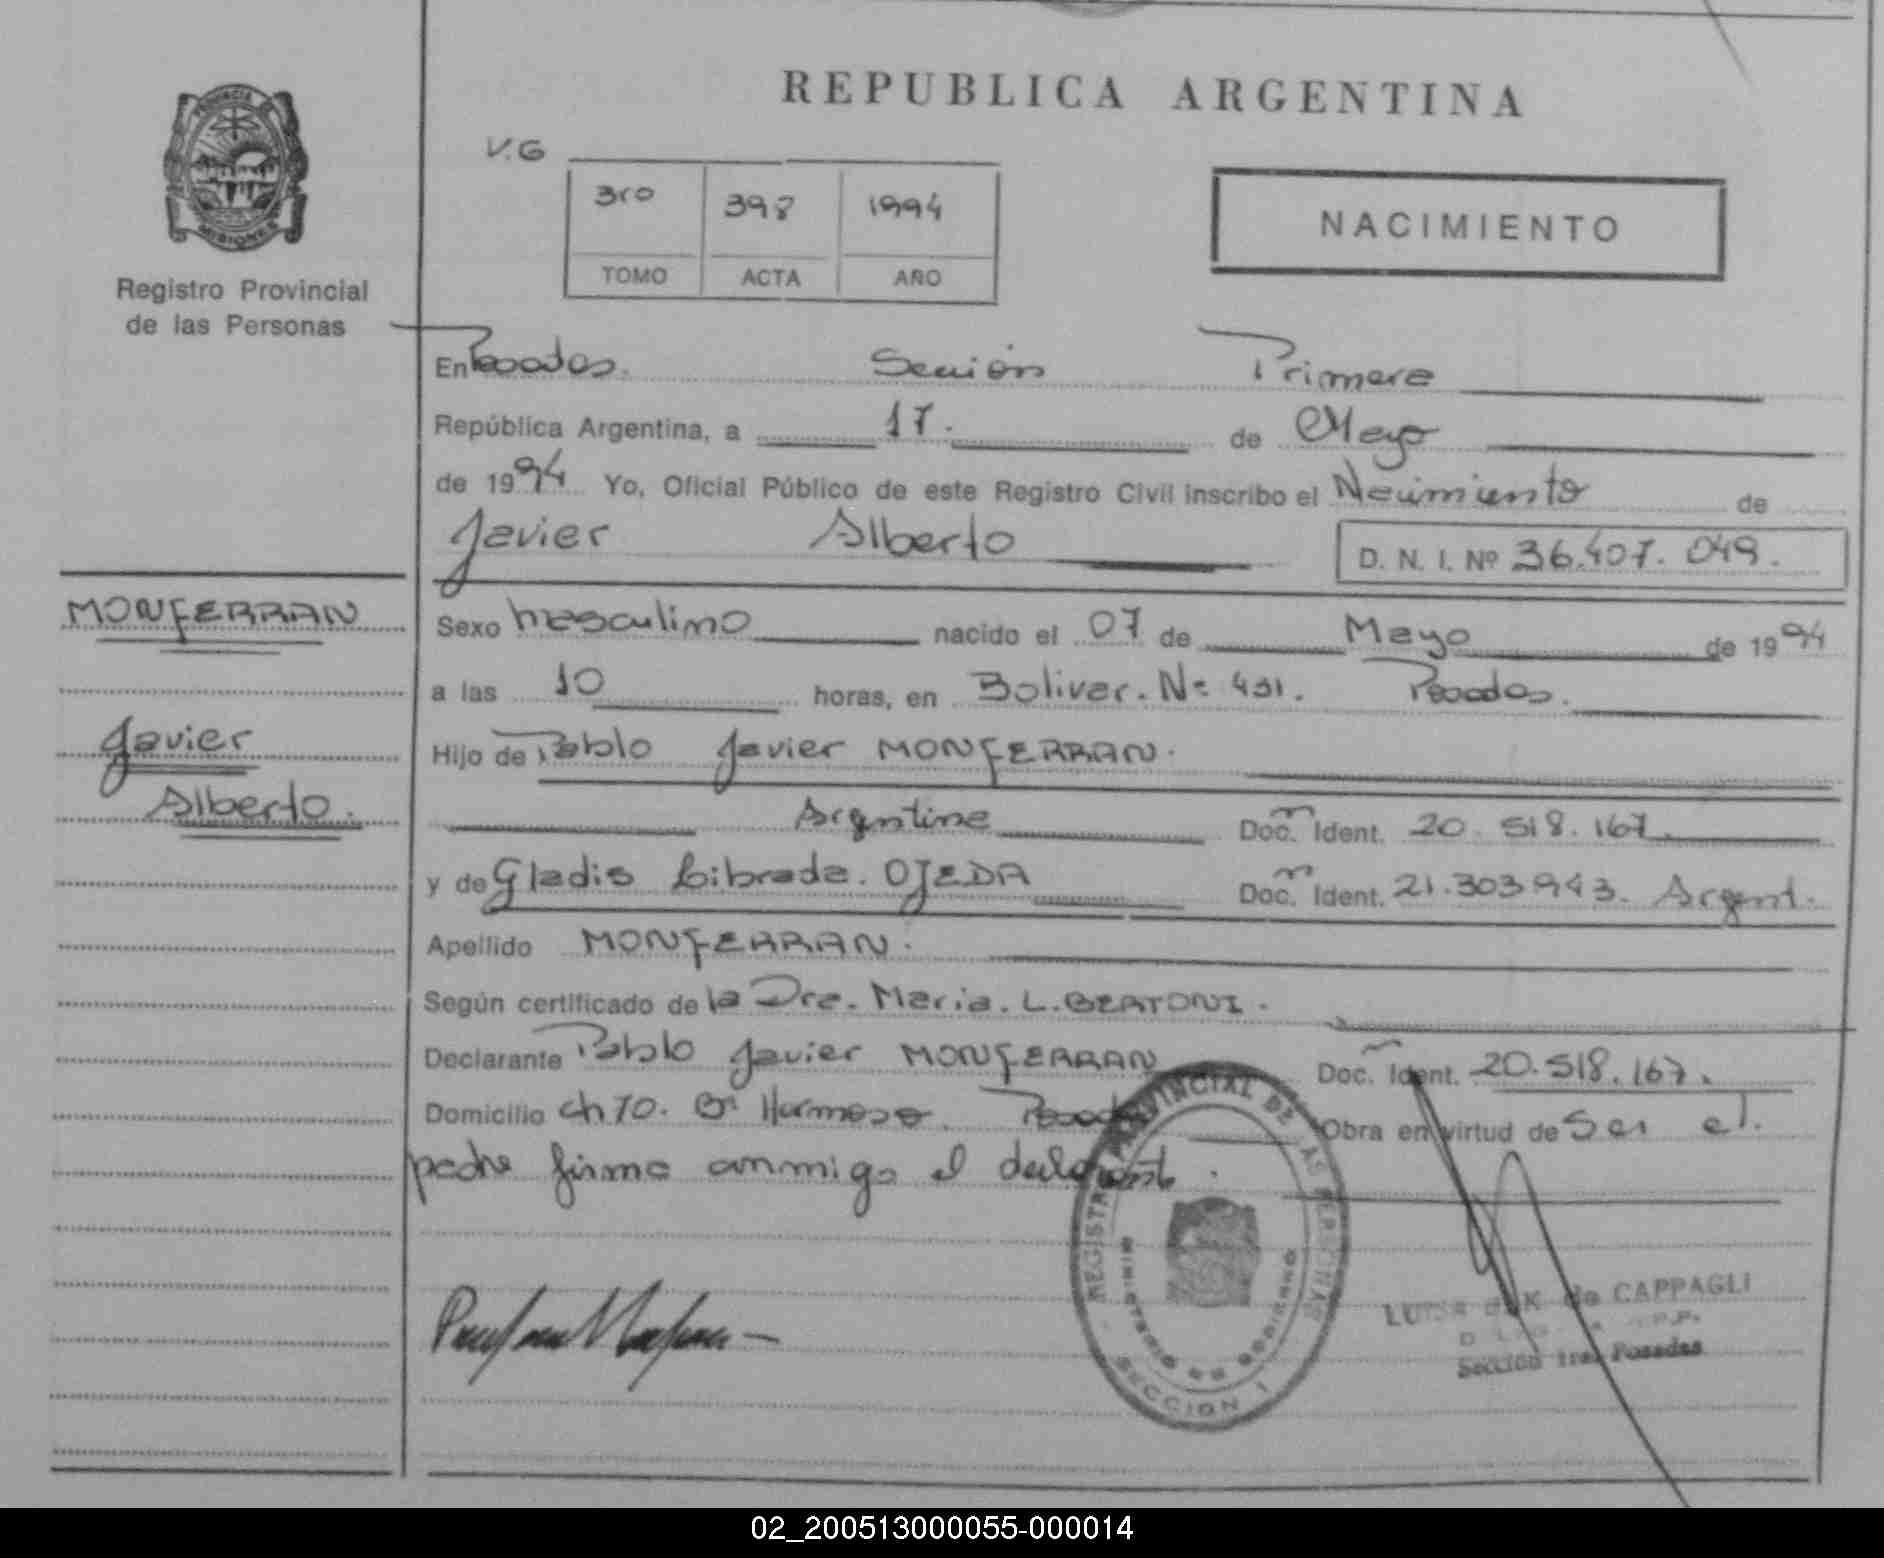 REPUBLICA ARGENTINA
PROVINCIA
MISIONES
Registro Provincial
de las Personas
V.G
3ro 398 1994
TOMO ACTA AÑO
NACIMIENTO
En Posadas. Sección Primera
República Argentina, a 17. de Mayo
de 1994 Yo, Oficial Público de este Registro Civil inscribo el Nacimiento de
Javier Alberto D. N. I. Nº 36.407.049.
MONFERRAN
Javier
Alberto.
Sexo masculino nacido el 07 de Mayo de 1994
a las 10 horas, en Bolivar. Nº 431. Posadas.
Hijo de Pablo Javier MONFERRAN.
Argentina Doc. Ident. 20.518.167.
y de Gladis Librada. OJEDA Doc. Ident. 21.303.943. Argent.
Apellido MONFERRAN.
Según certificado de la Dra. Maria. L. BERTONI.
Declarante Pablo Javier MONFERRAN Doc. Ident. 20.518.167.
Domicilio Ch 70. Bº Hermoso. Posadas Obra en virtud de Ser el.
padre firma conmigo el declarante.
REGISTRO PROVINCIAL DE LAS PERSONAS
MINISTERIO DE GOBIERNO
SECCION 1
LUISA de CAPPAGLI
Sección 1ra. Posadas
02_200513000055-000014